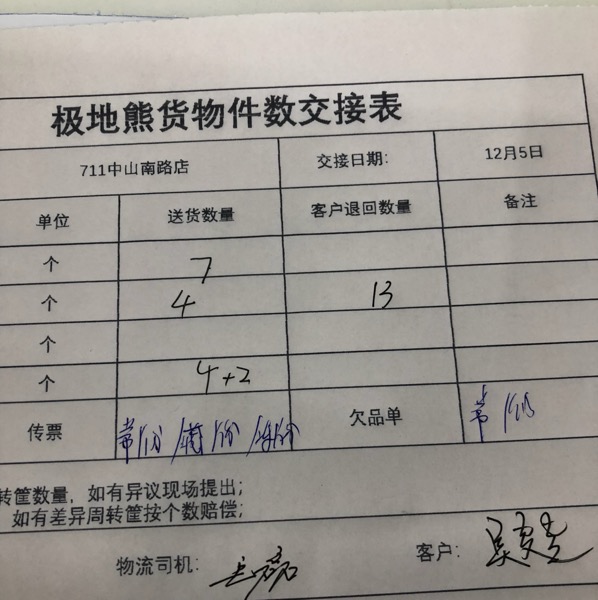 极地熊货物件数交接表
711中山南路店 交接日期: 12月5日
单位 送货数量 客户退回数量 备注
个 7
个 4 13
个
个 4+2
传票 常1份 1份 欠品单 常1份
转筐数量，如有异议现场提出；
如有差异周转筐按个数赔偿；
物流司机： 客户：